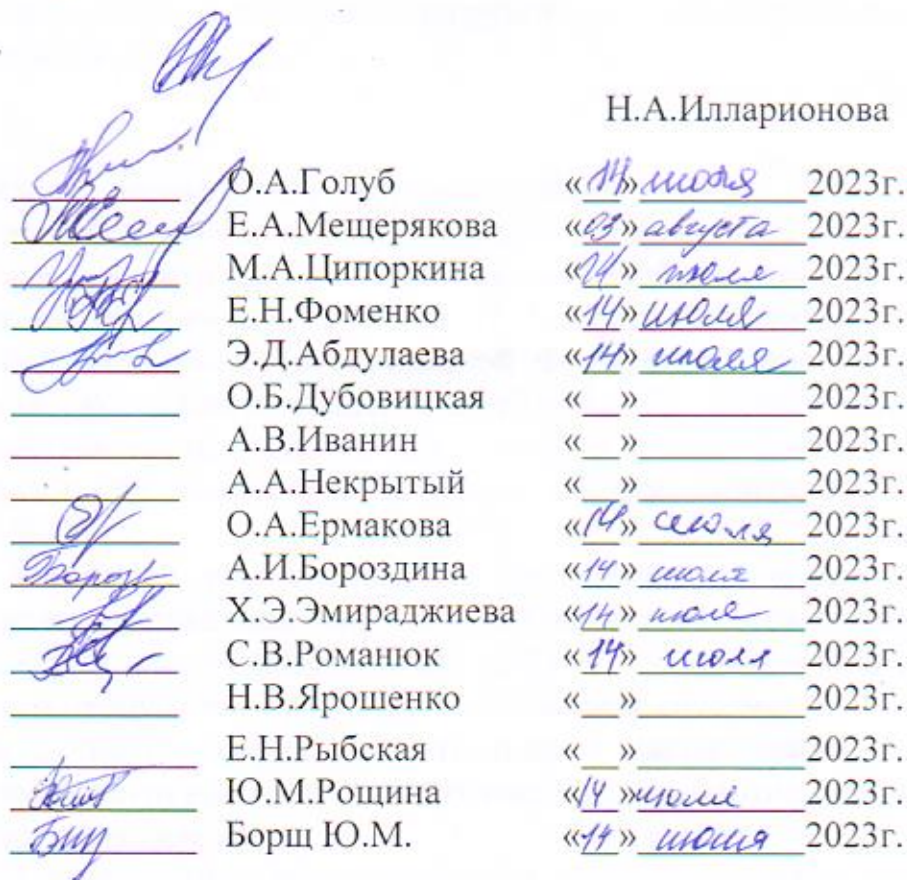 Н.А.Илларионова
О.А.Голуб «14» июля 2023г.
Е.А.Мещерякова «03» августа 2023г.
М.А.Ципоркина «14» июля 2023г.
Е.Н.Фоменко «14» июля 2023г.
Э.Д.Абдулаева «14» июля 2023г.
О.Б.Дубовицкая «__»__________2023г.
А.В.Иванин «__»__________2023г.
А.А.Некрытый «__»__________2023г.
О.А.Ермакова «14» июля 2023г.
А.И.Бороздина «14» июля 2023г.
Х.Э.Эмираджиева «14» июля 2023г.
С.В.Романюк «14» июля 2023г.
Н.В.Ярошенко «__»__________2023г.
Е.Н.Рыбская «__»__________2023г.
Ю.М.Рощина «14» июля 2023г.
Борщ Ю.М. «14» июля 2023г.